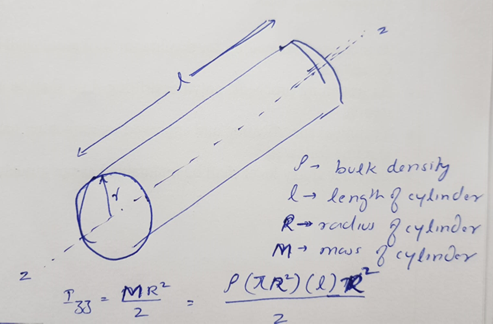 z
l
r
ρ → bulk density
l → length of cylinder
R → radius of cylinder
M → mass of cylinder
z
I₃₃ = MR²/2 = ρ(πR²)(l)R²/2